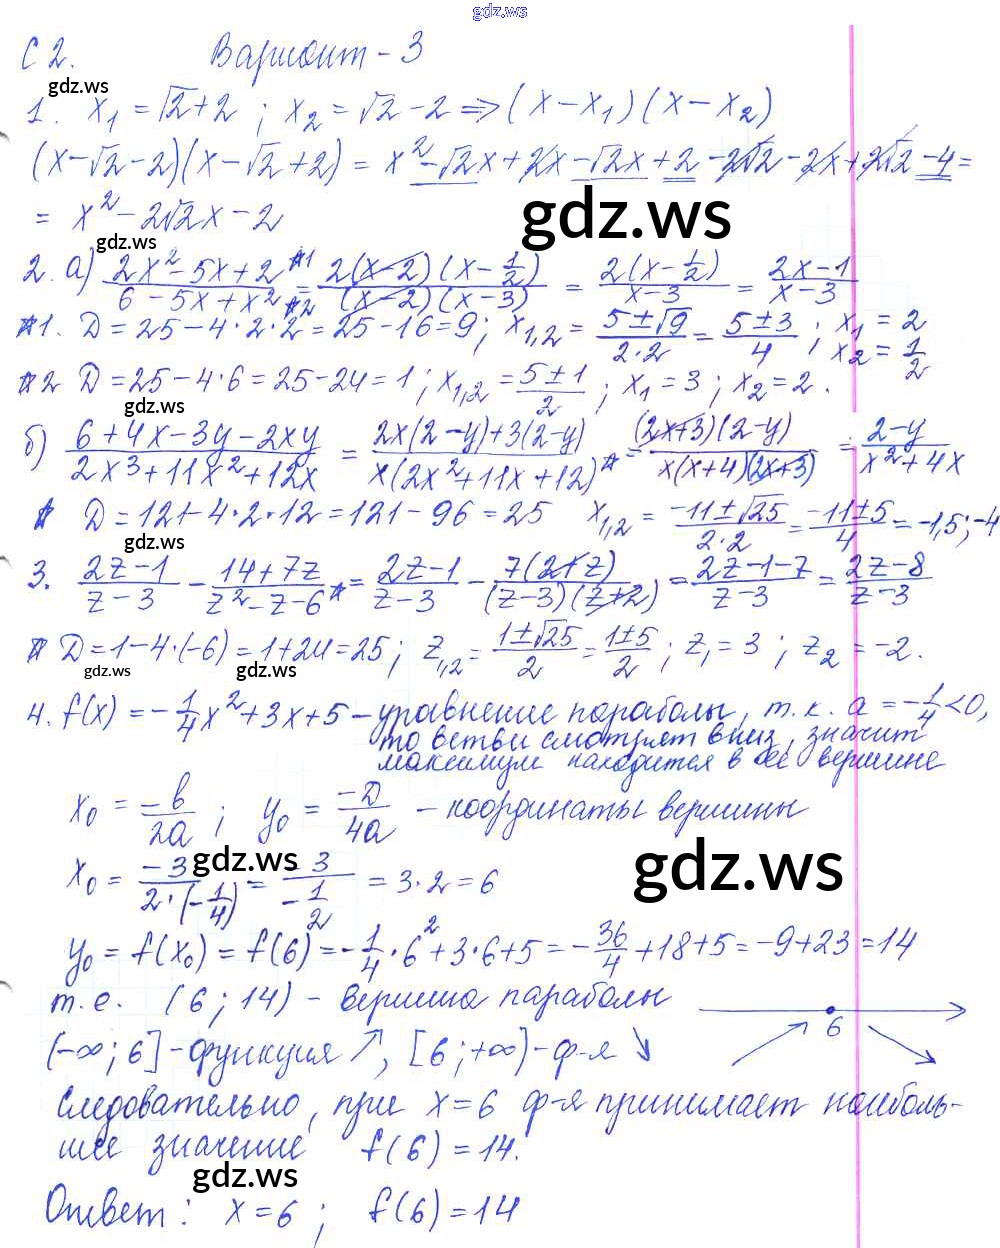 gdz.ws
С 2. Вариант - 3
gdz.ws
1. x₁ = √2 + 2 ; x₂ = √2 - 2 ⇒ (x - x₁)(x - x₂)
(x - √2 - 2)(x - √2 + 2) = x² - √2x + 2x - √2x + 2 - 2√2 - 2x + 2√2 - 4 =
= x² - 2√2x - 2
gdz.ws
gdz.ws
2. а) (2x² - 5x + 2 *1)/(6 - 5x + x² *2) = (2(x - 2)(x - 1/2))/((x - 2)(x - 3)) = (2(x - 1/2))/(x - 3) = (2x - 1)/(x - 3)
*1. D = 25 - 4·2·2 = 25 - 16 = 9; x₁,₂ = (5 ± √9)/(2·2) = (5 ± 3)/4 ; x₁ = 2 x₂ = 1/2
*2 D = 25 - 4·6 = 25 - 24 = 1 ; x₁,₂ = (5 ± 1)/2 ; x₁ = 3 ; x₂ = 2.
gdz.ws
б) (6 + 4x - 3y - 2xy)/(2x³ + 11x² + 12x) = (2x(2 - y) + 3(2 - y))/(x(2x² + 11x + 12)*) = ((2x + 3)(2 - y))/(x(x + 4)(2x + 3)) = (2 - y)/(x² + 4x)
* D = 121 - 4·2·12 = 121 - 96 = 25 x₁,₂ = (-11 ± √25)/(2·2) = (-11 ± 5)/4 = -1,5; -4
gdz.ws
3. (2z - 1)/(z - 3) - (14 + 7z)/(z² - z - 6 *) = (2z - 1)/(z - 3) - (7(2 + z))/((z - 3)(z + 2)) = (2z - 1 - 7)/(z - 3) = (2z - 8)/(z - 3)
* D = 1 - 4·(-6) = 1 + 24 = 25 ; z₁,₂ = (1 ± √25)/2 = (1 ± 5)/2 ; z₁ = 3 ; z₂ = -2.
gdz.ws gdz.ws
4. f(x) = -1/4 x² + 3x + 5 - уравнение параболы, т.к. a = -1/4 < 0,
то ветви смотрят вниз, значит
максимум находится в её вершине
x₀ = -b/2a ; y₀ = -D/4a - координаты вершины
gdz.ws gdz.ws
x₀ = -3/(2·(-1/4)) = 3/(-1/2) = 3·2 = 6
y₀ = f(x₀) = f(6) = -1/4 · 6² + 3·6 + 5 = -36/4 + 18 + 5 = -9 + 23 = 14
т.е. (6 ; 14) - вершина параболы
6
(-∞ ; 6] - функция ↗, [6 ; +∞) - ф-я ↘
Следовательно, при x = 6 ф-я принимает наиболь-
шее значение f(6) = 14.
gdz.ws
Ответ: x = 6 ; f(6) = 14